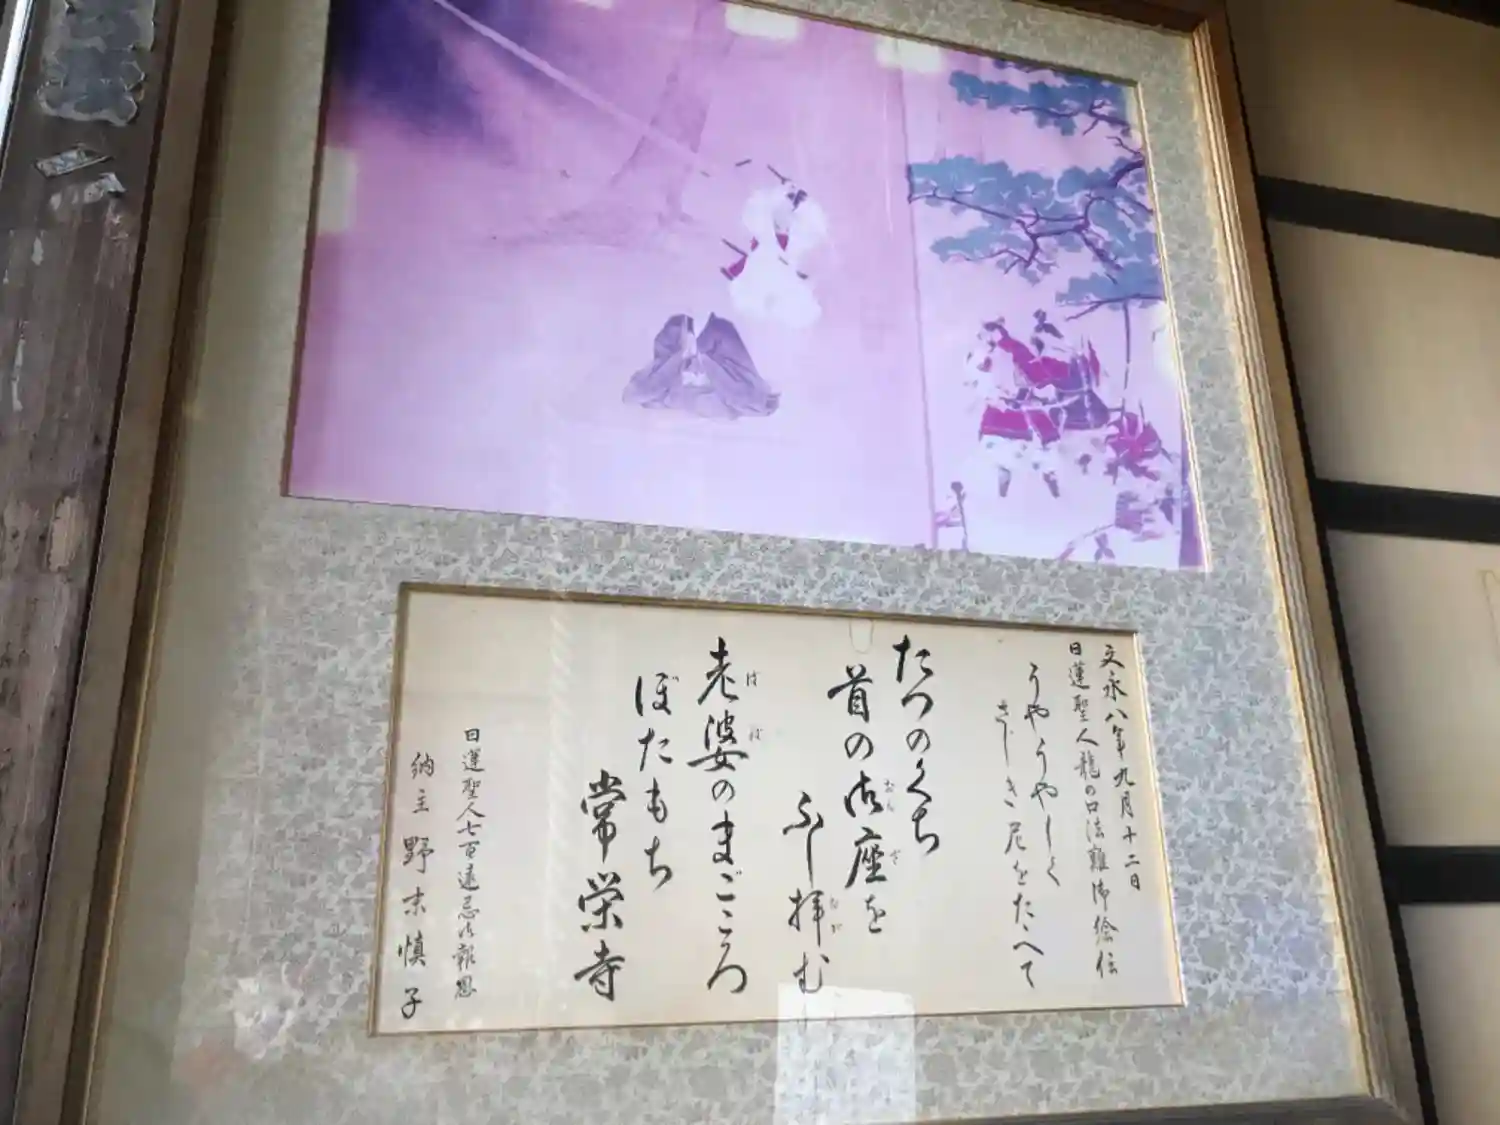 文永八年九月十二日
日蓮聖人龍の口法難御絵伝
うやうやしく
さじき尼をたゝへて
たつのくち
首の御座を
おん ざ
ふし拝む
をが
老婆のまごころ
ばば
ぼたもち
常栄寺
日蓮聖人七百遠忌御報恩
納主 野末慎子